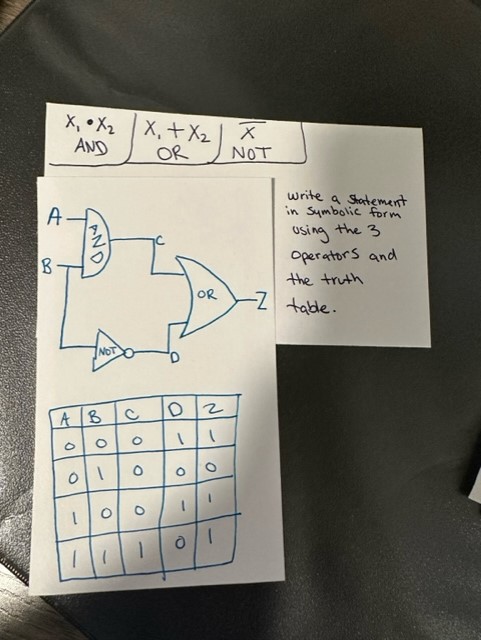 X₁ • X₂
AND
X₁ + X₂
OR
X̅
NOT
Write a Statement
in Symbolic form
using the 3
operators and
the truth
table.
A
AND
C
B
OR
Z
NOT
D
A B C D Z
0 0 0 1 1
0 1 0 0 0
1 0 0 1 1
1 1 1 0 1